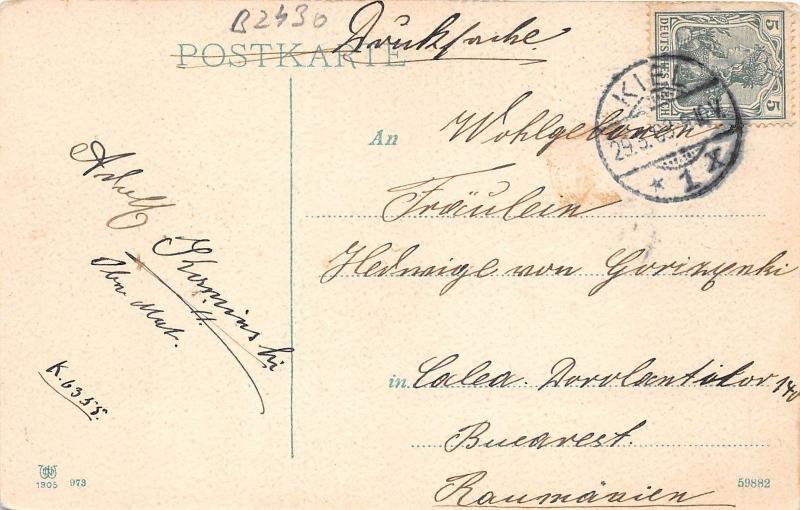 B2430
Drucksache.
POSTKARTE
5 DEUTSCHES REICH 5
KIEL
* 1 X
An Wohlgeboren
Fräulein
Hedwige von Gorizynski
in Calea. Dorolantilor 140
Bucarest.
Raumänien
Adolf
Skopinski
Obn Mat.
K. 6355.
1905 973
59882